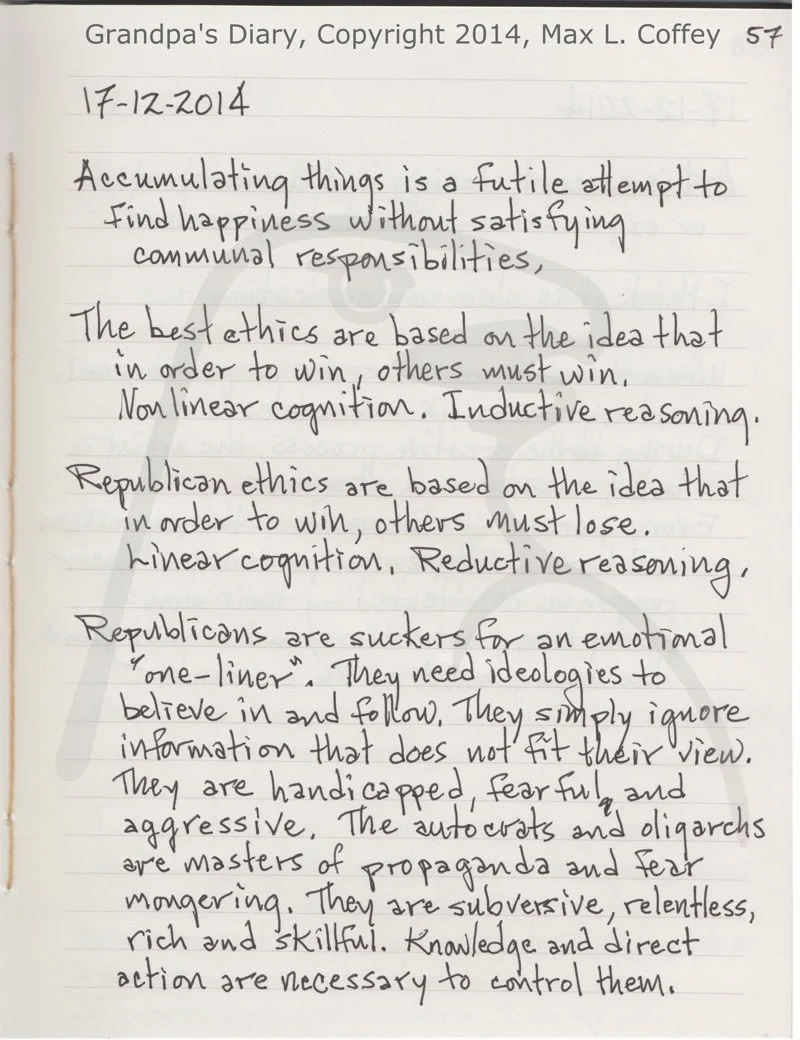 Grandpa's Diary, Copyright 2014, Max L. Coffey 57
17-12-2014
Accumulating things is a futile attempt to
find happiness without satisfying
communal responsibilities,
The best ethics are based on the idea that
in order to win, others must win.
Nonlinear cognition. Inductive reasoning.
Republican ethics are based on the idea that
in order to win, others must lose.
Linear cognition. Reductive reasoning.
Republicans are suckers for an emotional
"one-liner". They need ideologies to
believe in and follow. They simply ignore
information that does not fit their view.
They are handicapped, fearful, and
aggressive. The autocrats and oligarchs
are masters of propaganda and fear
mongering. They are subversive, relentless,
rich and skillful. Knowledge and direct
action are necessary to control them.